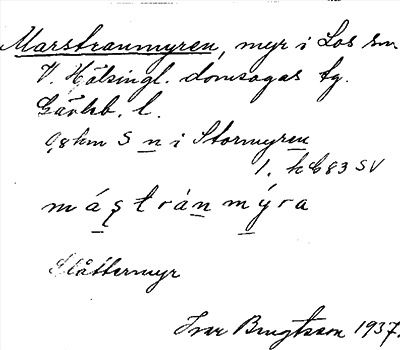 Marstranmyren, myr i Los sn
V. Hälsingl. domsagas tg.
Gävleb. l.
0,8 km S n i Stormyren
1. h 6 83 SV
mástránmýra
Slåttermyr
Ivar Bengtsson 1937.